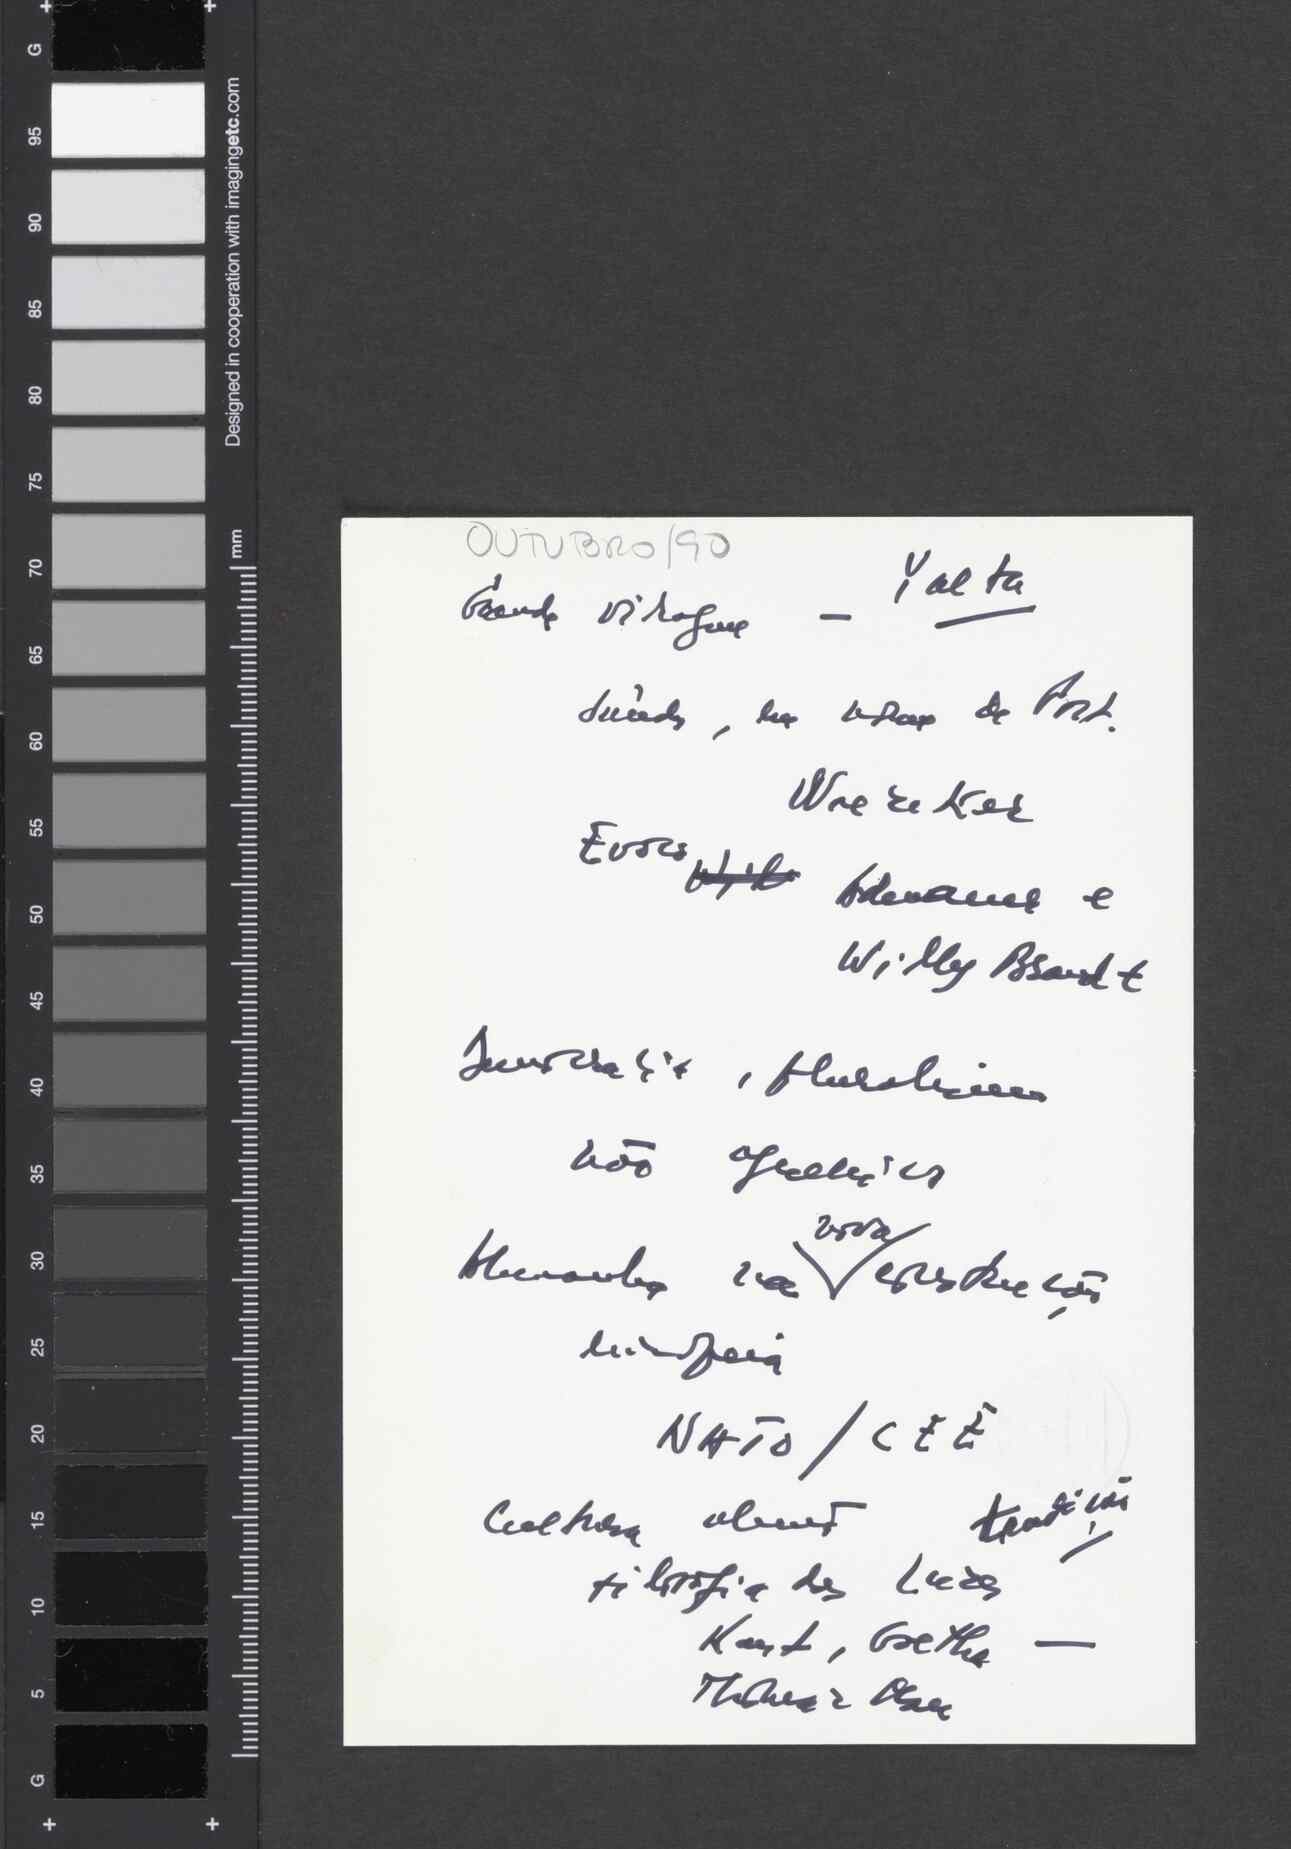 OUTUBRO/90
Grande viragem — Yalta
saúdo, em nome de Port.
Evoco
Adenauer e
Willy Brandt
Democracia, pluralismo
não
Alemanha na nova construção
europeia
NATO / CEE
Cultura alemã tradição
Filosofia das Luzes
Kant, Goethe —
Thomas Mann
G
95
90
85
80
75
70
65
60
55
50
45
40
35
30
25
20
15
10
5
G
Designed in cooperation with imagingetc.com
mm